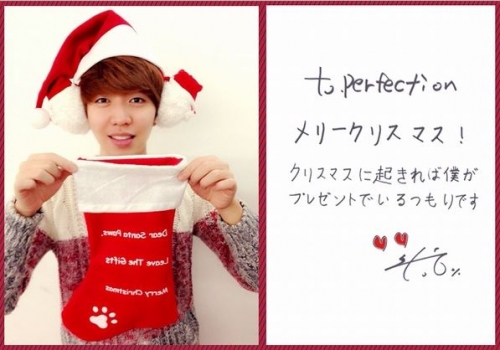 Dear Santa Paws,
Leave The Gifts
Merry Christmas
to. perfection
メリークリスマス!
クリスマスに起きれば僕が
プレゼントでいるつもりです